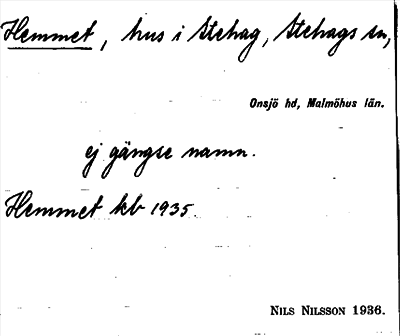 Hemmet, hus i Stehag, Stehags sn,
Onsjö hd, Malmöhus län.
ej gängse namn.
Hemmet kb 1935.
NILS NILSSON 1936.